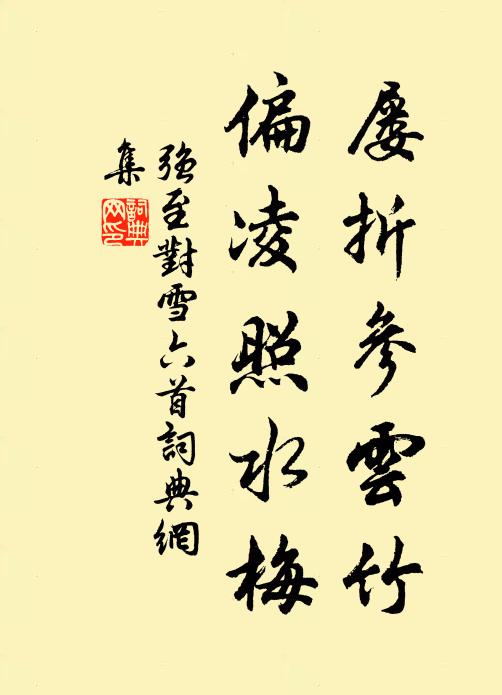 屢折參雲竹
偏凌照水梅
強至對雪六首詞典網
集
詞典
网印